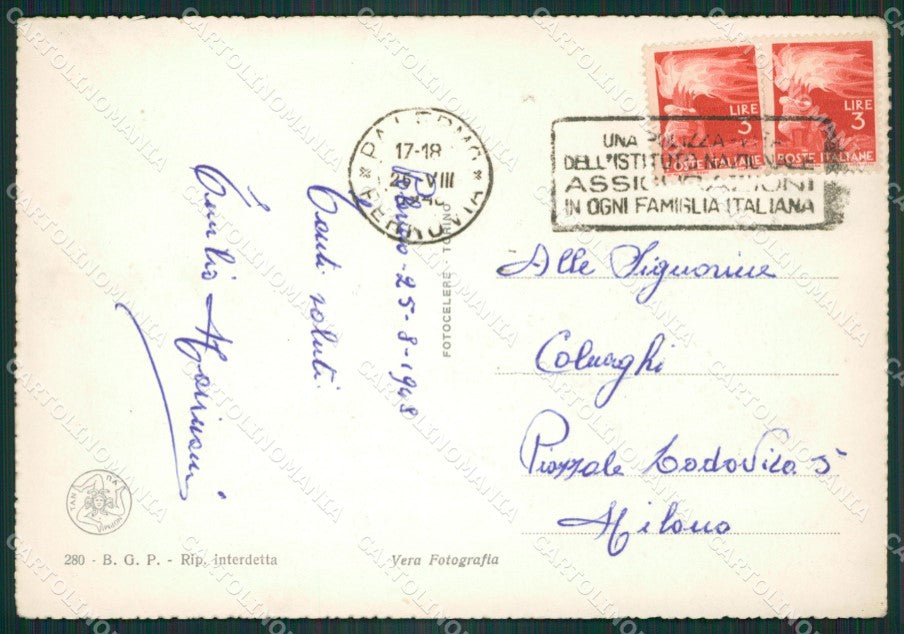 LIRE
3
POSTE ITALIANE
LIRE
3
POSTE ITALIANE
PALERMO
17-18
25 VIII
FERROVIA
UNA POLIZZA VITA
DELL'ISTITUTO NAZIONALE
ASSICURAZIONI
IN OGNI FAMIGLIA ITALIANA
Palermo - 25-8-1948
Tanti saluti
Emilio
FOTOCELERE - TORINO
Alle Signorine
Piazzale Lodovica 5
Milano
280 - B. G. P. - Rip. interdetta
Vera Fotografia
CARTOLINOMANIA